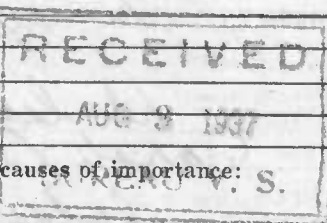 RECEIVED
AUG 9 1937
causes of importance:
BUREAU V. S.